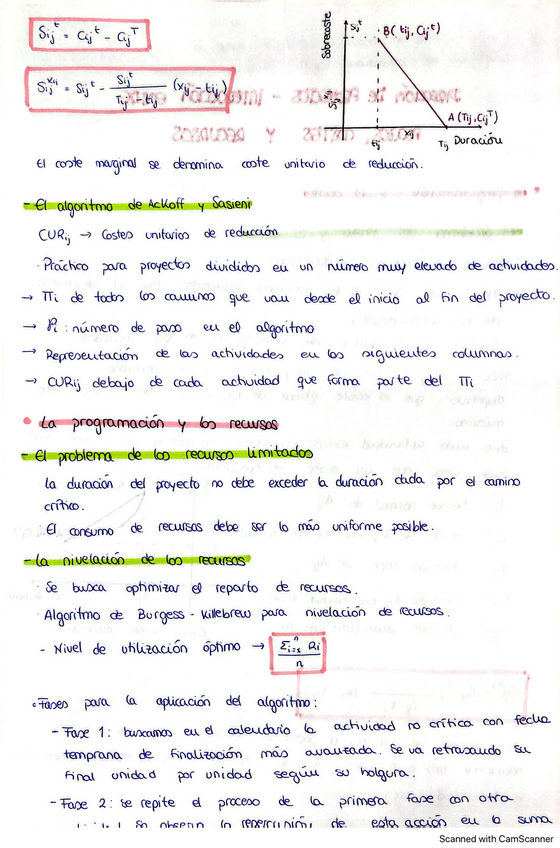 Sij^t = Cij^t - Cij^T
Sij^xij = Sij^t - Sij^t / (Tij - tij) (xij - tij)
Sobrecoste
Sij^t
B( tij, Cij^t)
Sij^xij
A (Tij, Cij^T)
tij
xij
Tij
Duración
El coste marginal se denomina coste unitario de reducción.
- El algoritmo de Ackoff y Sasieni
CURij → Costes unitarios de reducción
· Práctico para proyectos divididos en un número muy elevado de actividades.
→ Πi de todos los caminos que van desde el inicio al fin del proyecto.
→ Pi : número de paso en el algoritmo
→ Representación de las actividades en las siguientes columnas.
→ CURij debajo de cada actividad que forma parte del Πi
• La programación y los recursos
- El problema de los recursos limitados
La duración del proyecto no debe exceder la duración dada por el camino
crítico.
· El consumo de recursos debe ser lo más uniforme posible.
- La nivelación de los recursos
· Se busca optimizar el reparto de recursos.
· Algoritmo de Burgess - Killebrew para nivelación de recursos.
- Nivel de utilización óptimo → Σ i=1 n Ri / n
• Fases para la aplicación del algoritmo:
- Fase 1: buscamos en el calendario la actividad no crítica con fecha
temprana de finalización más avanzada. Se va retrasando su
final unidad por unidad según su holgura.
- Fase 2: se repite el proceso de la primera fase con otra
Se observa la repercusión de esta acción en la suma
Scanned with CamScanner